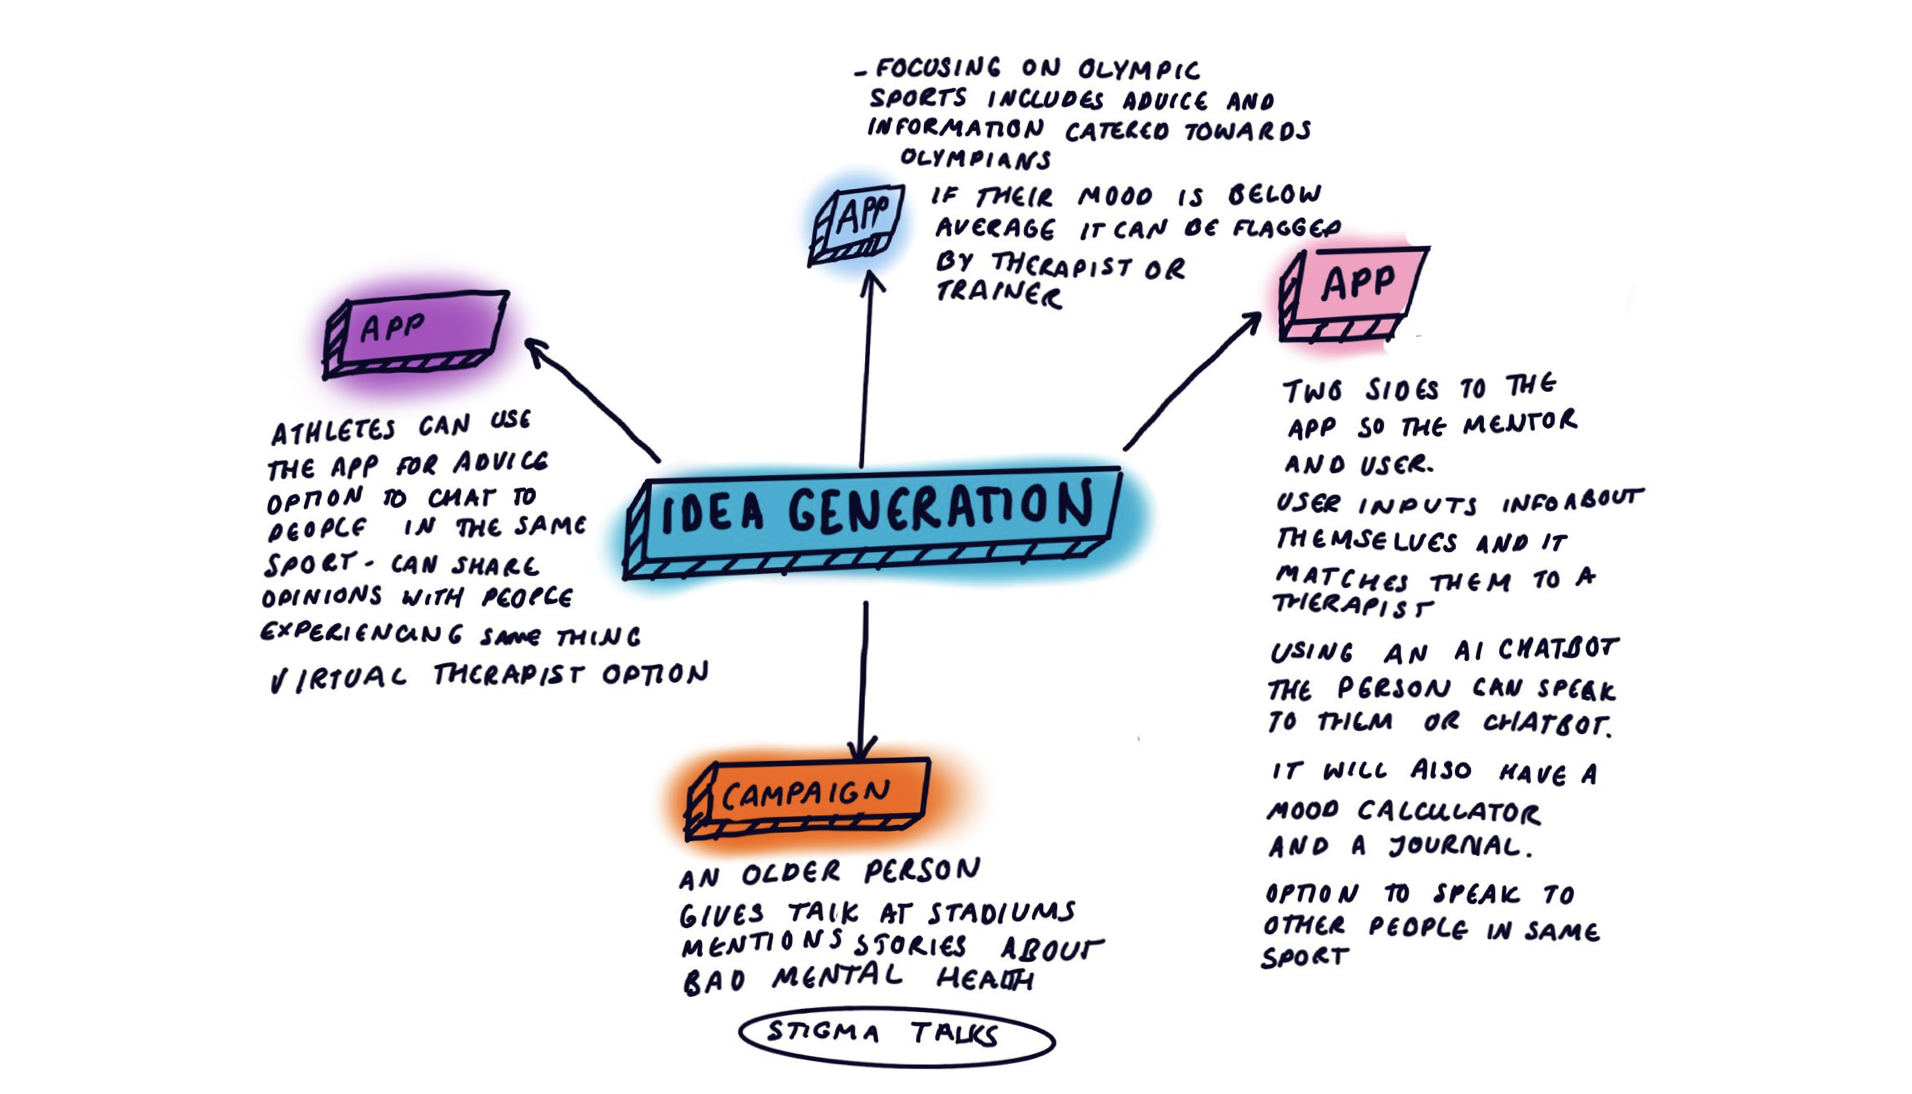 - FOCUSING ON OLYMPIC
SPORTS INCLUDES ADVICE AND
INFORMATION CATERED TOWARDS
OLYMPIANS
APP
IF THEIR MOOD IS BELOW
AVERAGE IT CAN BE FLAGGED
BY THERAPIST OR
TRAINER
APP
ATHLETES CAN USE
THE APP FOR ADVICE
OPTION TO CHAT TO
PEOPLE IN THE SAME
SPORT - CAN SHARE
OPINIONS WITH PEOPLE
EXPERIENCING SAME THING
VIRTUAL THERAPIST OPTION
APP
TWO SIDES TO THE
APP SO THE MENTOR
AND USER.
USER INPUTS INFO ABOUT
THEMSELVES AND IT
MATCHES THEM TO A
THERAPIST
USING AN AI CHATBOT
THE PERSON CAN SPEAK
TO THEM OR CHATBOT.
IT WILL ALSO HAVE A
MOOD CALCULATOR
AND A JOURNAL.
OPTION TO SPEAK TO
OTHER PEOPLE IN SAME
SPORT
IDEA GENERATION
CAMPAIGN
AN OLDER PERSON
GIVES TALK AT STADIUMS
MENTIONS STORIES ABOUT
BAD MENTAL HEALTH
STIGMA TALKS